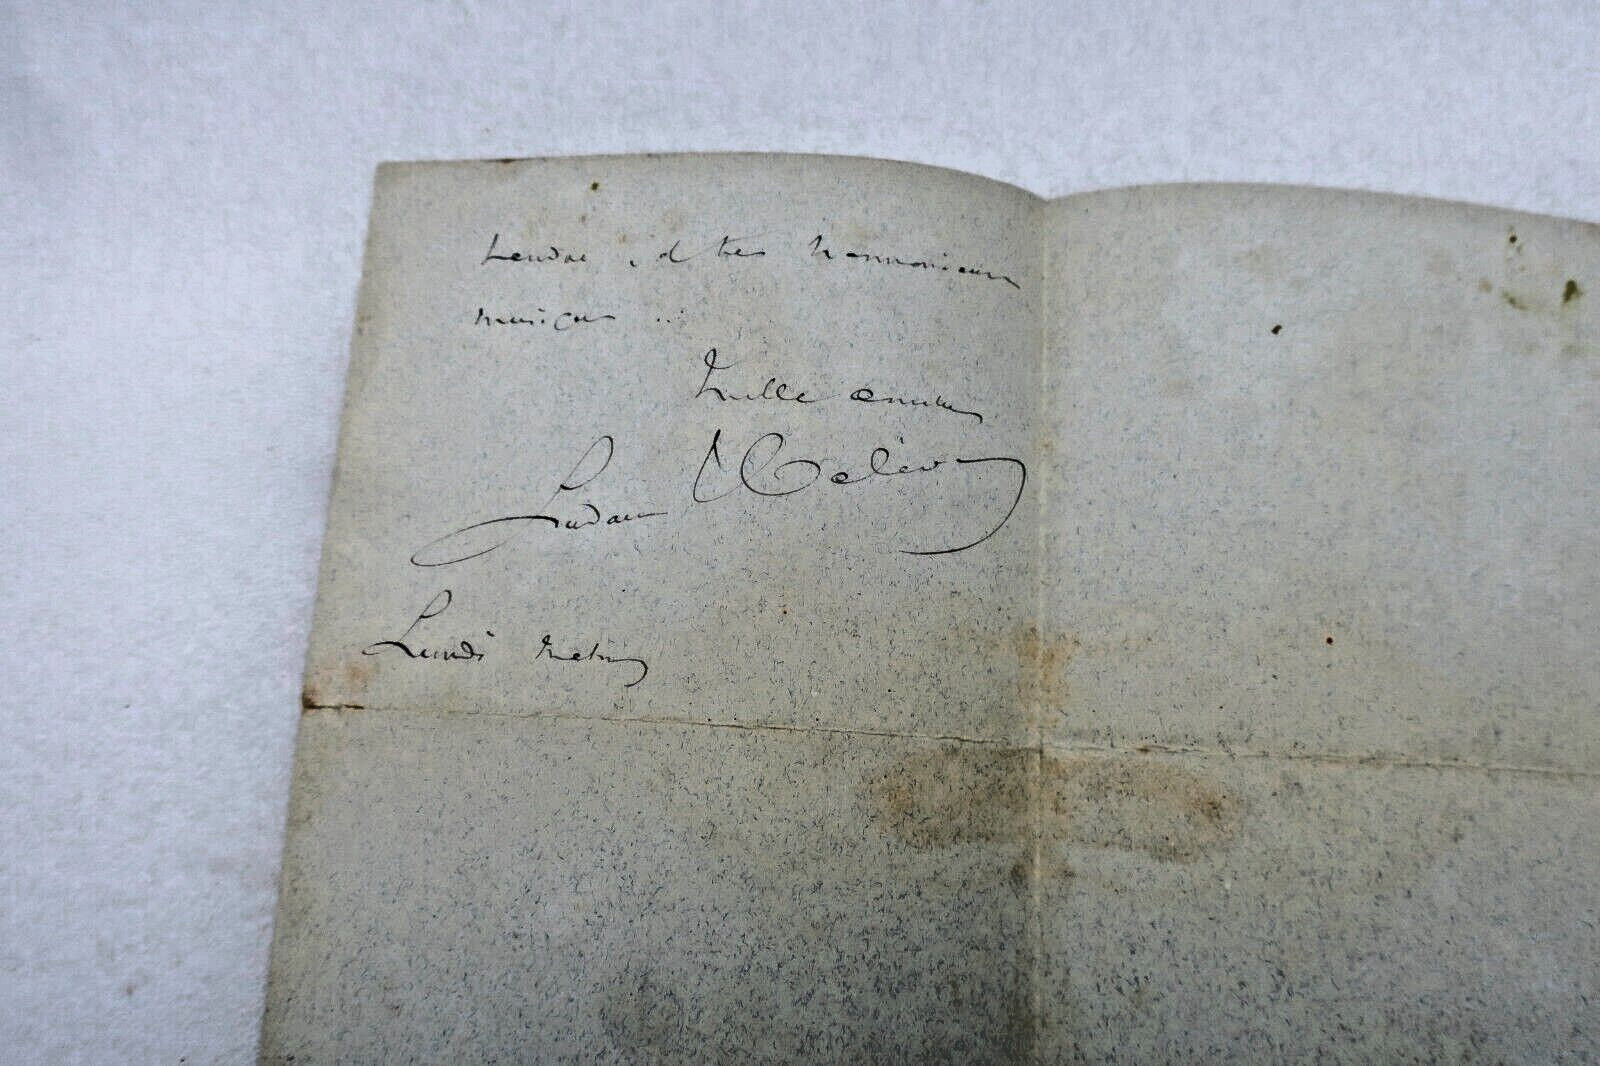 tendre et très harmonieuse
musique ...
Mille amitiés
Ludovic Halévy
Lundi matin